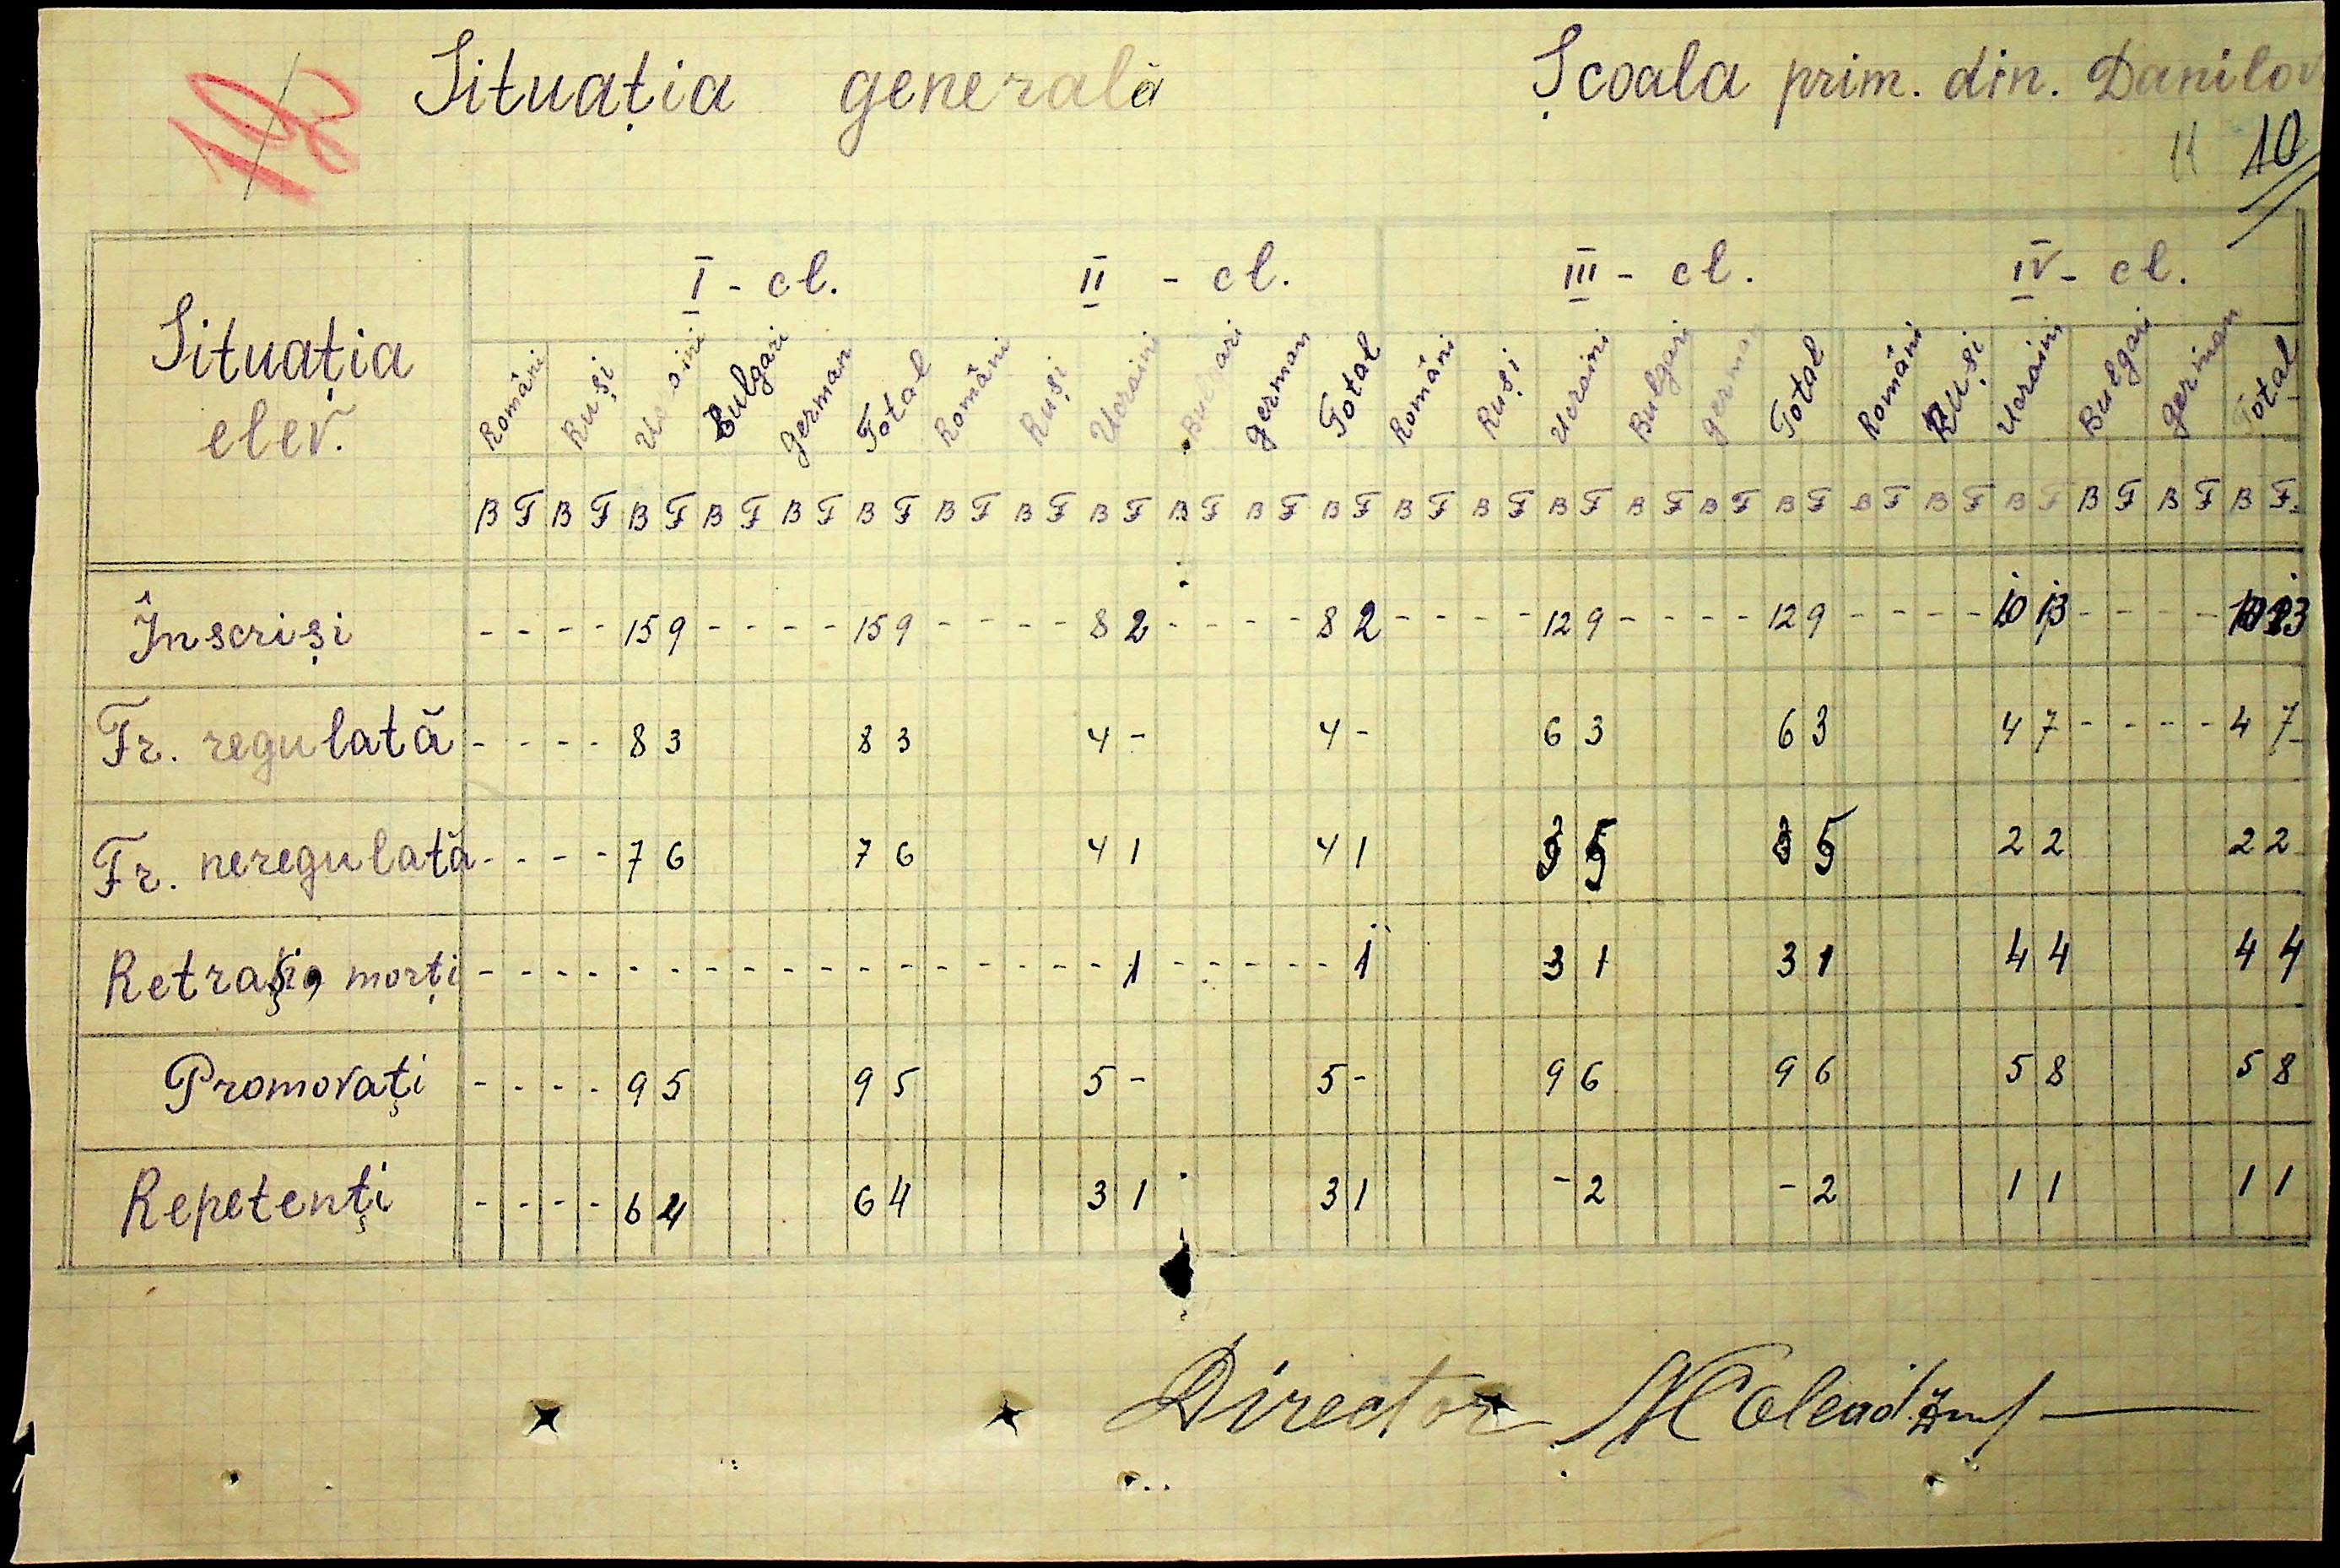 Situația generală Școala prim. din. Danilov
11 10
Situația elev. I - cl. II - cl. III - cl. IV - cl.
Români Ruși Ucraini Bulgari german Total Români Ruși Ucraini Bulgari german Total Români Ruși Ucraini Bulgari german Total Români Ruși Ucraini Bulgari german Total
B F B F B F B F B F B F B F B F B F B F B F B F B F B F B F B F B F B F B F B F B F B F B F B F
Înscriși - - - - 15 9 - - - - 15 9 - - - - 8 2 - - - - 8 2 - - - - 12 9 - - - - 12 9 - - - - 10 13 - - - - 10 13
Fr. regulată - - - - 8 3 8 3 4 - 4 - 6 3 6 3 4 7 - - - - 4 7
Fr. neregulată - - - - 7 6 7 6 4 1 4 1 3 5 3 5 2 2 2 2
Retrași, morți - - - - - - - - - - - - - - - - - 1 - - - - - 1 3 1 3 1 4 4 4 4
Promovați - - - - 9 5 9 5 5 - 5 - 9 6 9 6 5 8 5 8
Repetenți - - - - 6 4 6 4 3 1 3 1 - 2 - 2 1 1 1 1
Director